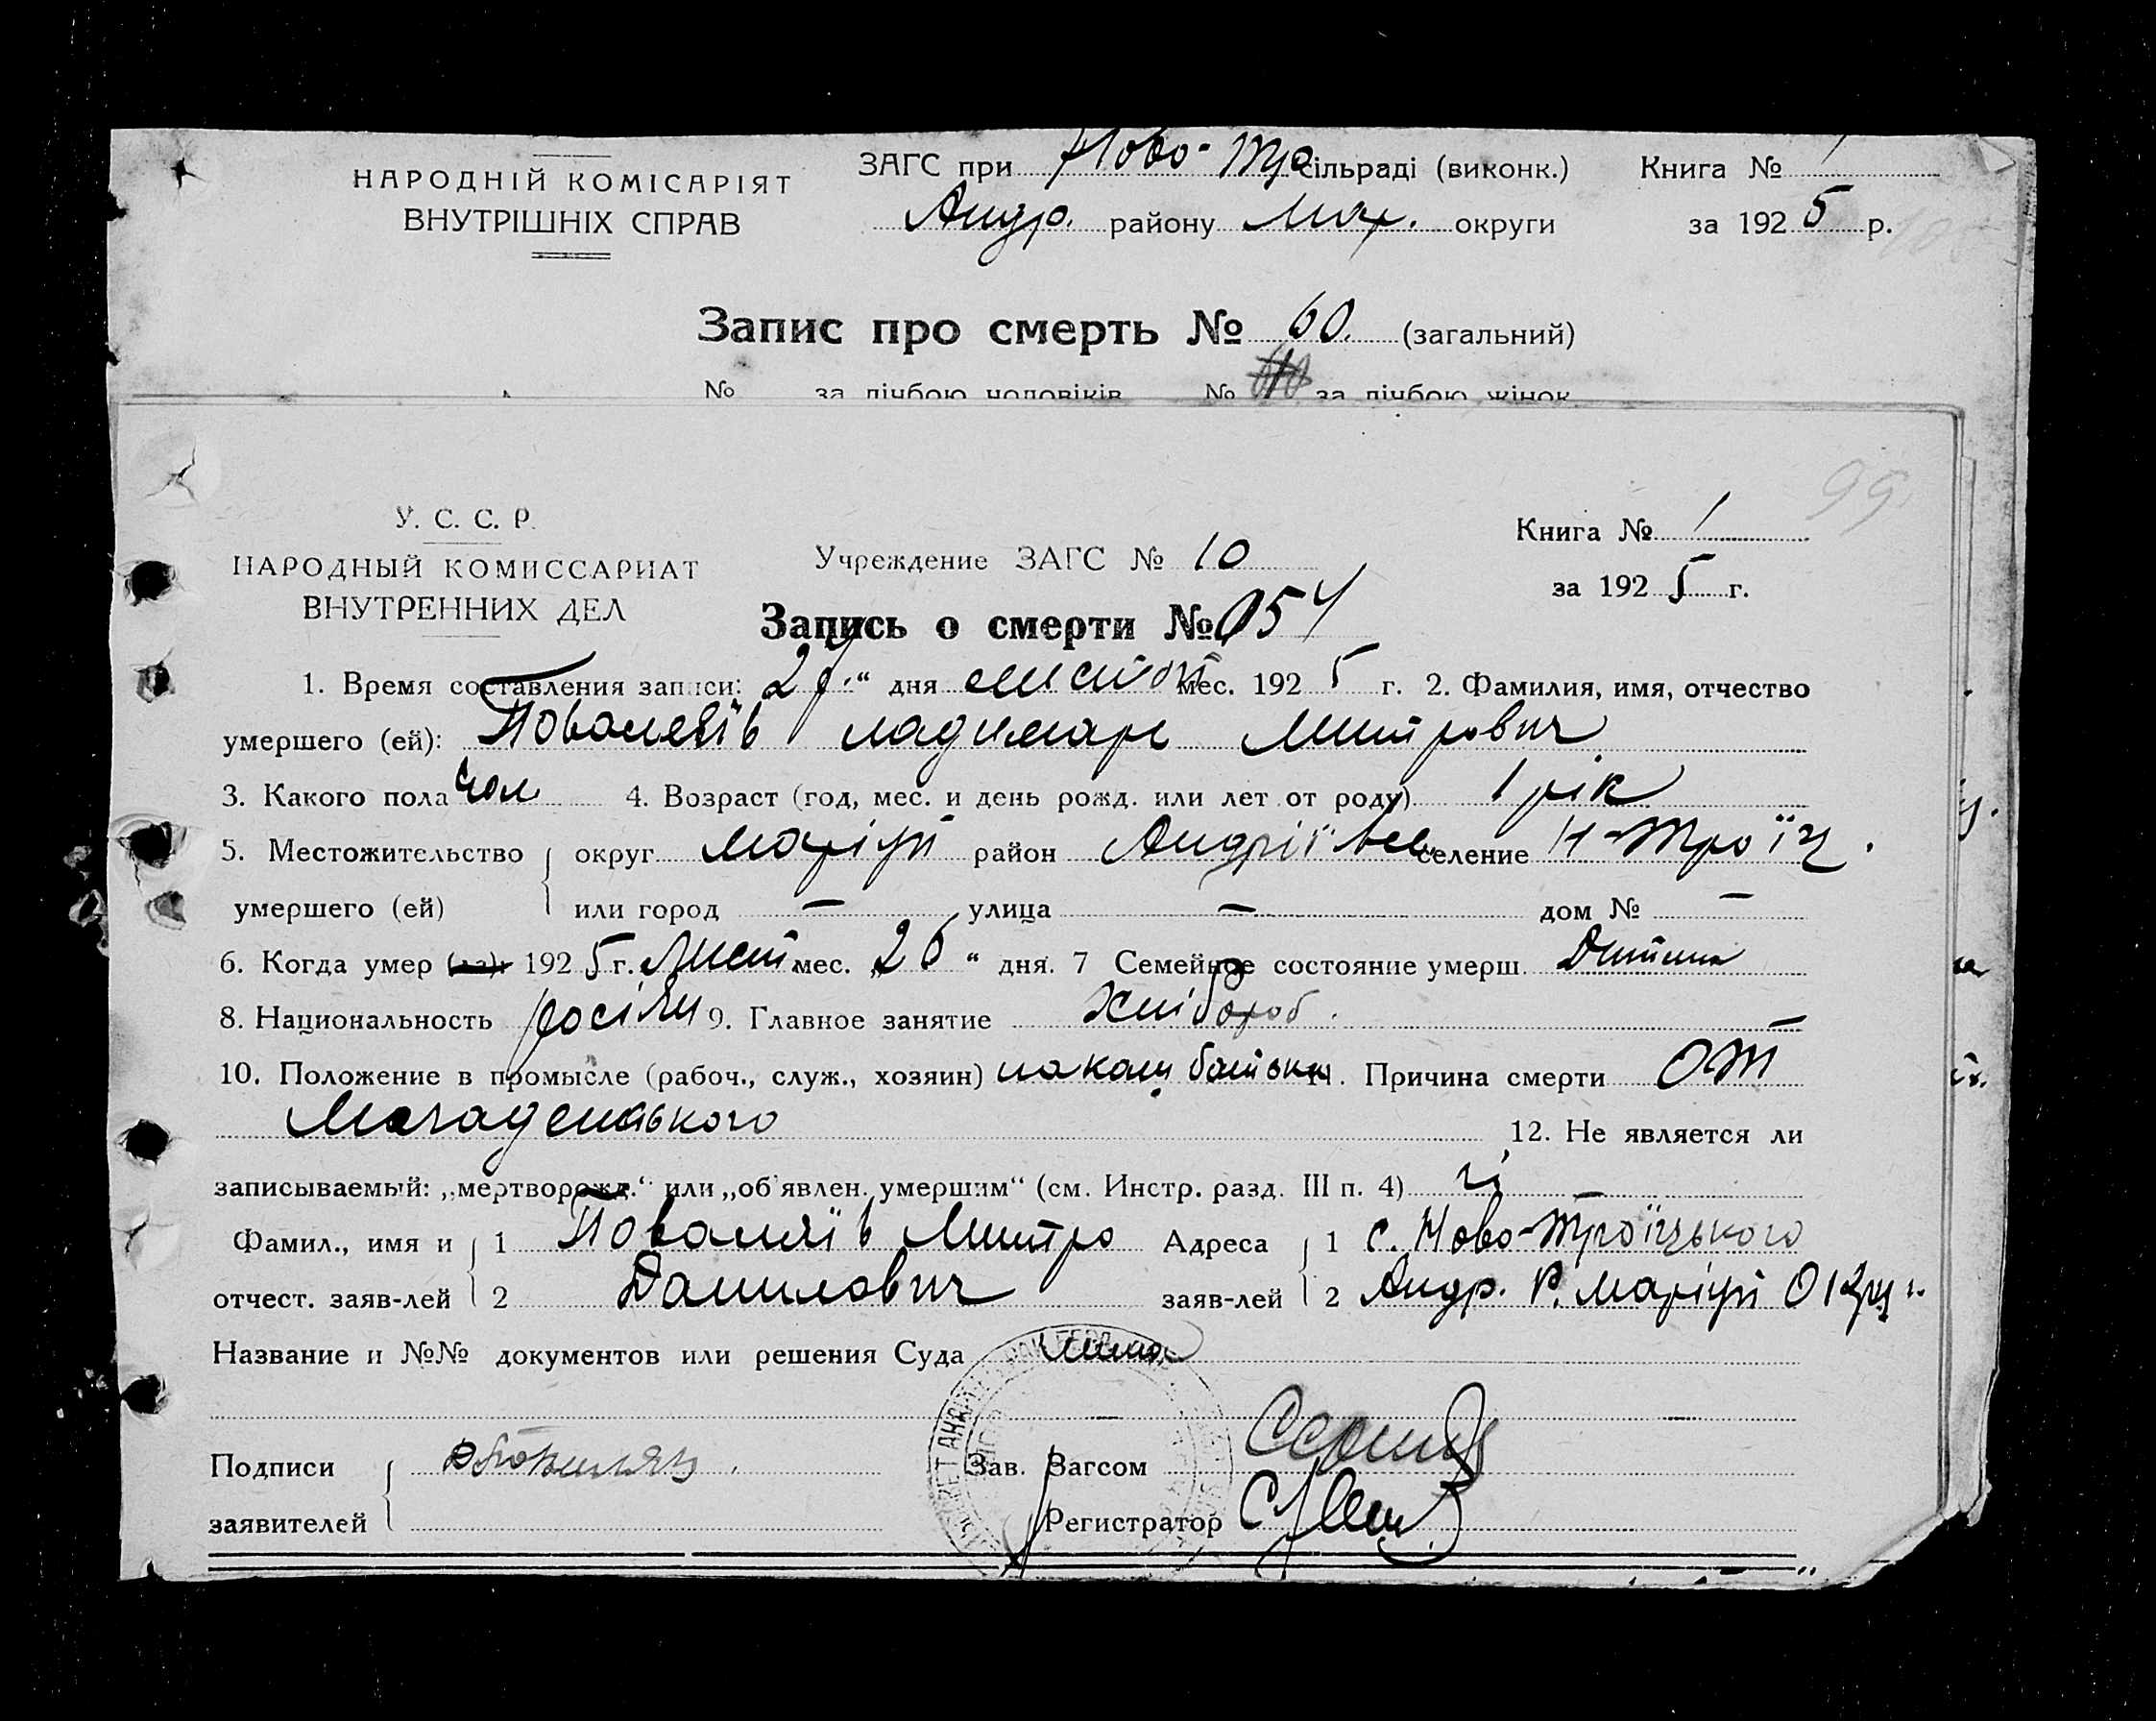 НАРОДНІЙ КОМІСАРІЯТ
ВНУТРІШНІХ СПРАВ
ЗАГС при Ново-Тро сільраді (виконк.) Книга № 1
Андр. району Мар. округи за 1925 р.
Запис про смерть № 60. (загальний)
№ за лічбою чоловіків № за лічбою жінок
99
У. С. С. Р.
НАРОДНЫЙ КОМИССАРИАТ
ВНУТРЕННИХ ДЕЛ
Учреждение ЗАГС № 10
Книга № 1
за 1925 г.
Запись о смерти № 054
1. Время составления записи: дня листоп мес. 1925 г. 2. Фамилия, имя, отчество
умершего (ей): Поваляїв ладимарь Митрович
3. Какого пола чол 4. Возраст (год, мес. и день рожд. или лет от роду) 1 рік
5. Местожительство округ Маріуп район Андріївс селение Н-Троїц.
умершего (ей) или город — улица — дом № —
6. Когда умер (ла): 1925 г. Лист мес. „26“ дня. 7 Семейное состояние умерш. Дитина
8. Национальность росіян 9. Главное занятие Хлібороб. —
10. Положение в промысле (рабоч., служ., хозяин) батьки 11. Причина смерти от
12. Не является ли
записываемый: „мертворожд.“ или „об'явлен. умершим“ (см. Инстр. разд. III п. 4) ні —
Фамил., имя и 1 Поваляїв Митро Адреса 1 с. Ново-Троїцького
отчест. заяв-лей 2 Данилович заяв-лей 2 Андр. Р. Маріуп Окру
Название и №№ документов или решения Суда нима
—
Подписи Зав. Загсом
заявителей Регистратор